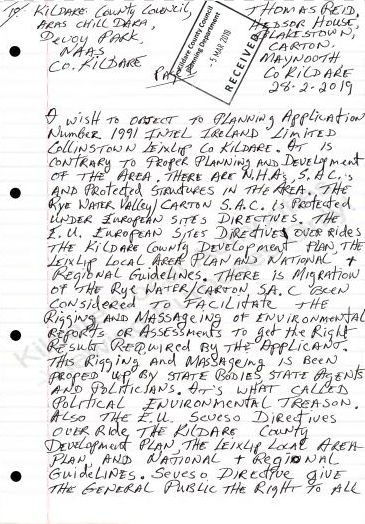 To KILDARE COUNTY COUNCIL,
ARAS CHILL DARA,
DEVOY PARK,
NAAS
CO. KILDARE
THOMAS REID,
HEDSOR HOUSE,
BLAKESTOWN,
CARTON,
MAYNOOTH
CO KILDARE
28-2-2019
Kildare County Council
Planning Department
- 5 MAR 2019
RECEIVED
I WISH TO OBJECT TO PLANNING APPLICATION
NUMBER 1991 INTEL IRELAND LIMITED
COLLINSTOWN LEIXLIP CO KILDARE. IT IS
CONTRARY TO PROPER PLANNING AND DEVELOPMENT
OF THE AREA. THERE ARE N.H.A.s, S.A.C.'s
AND PROTECTED STRUCTURES IN THE AREA. THE
RYE WATER VALLEY/CARTON S.A.C. IS PROTECTED
UNDER EUROPEAN SITES DIRECTIVES. THE
E.U. EUROPEAN SITES DIRECTIVES OVER RIDES
THE KILDARE COUNTY DEVELOPMENT PLAN, THE
LEIXLIP LOCAL AREA PLAN AND NATIONAL +
REGIONAL GUIDELINES. THERE IS MIGRATION
OF THE RYE WATER/CARTON S.A.C BEEN
CONSIDERED TO FACILITATE THE
RIGGING AND MASSAGEING OF ENVIRONMENTAL
REPORTS OR ASSESSMENTS TO GET THE RIGHT
RESULT REQUIRED BY THE APPLICANT.
THIS RIGGING AND MASSAGEING IS BEEN
PROPED UP BY STATE BODIES STATE AGENTS
AND POLITICIANS. IT'S WHAT CALLED
POLITICAL ENVIRONMENTAL TREASON.
ALSO THE E.U. SEVESO DIRECTIVES
OVER RIDE THE KILDARE COUNTY
DEVELOPMENT PLAN, THE LEIXLIP LOCAL AREA
PLAN, AND NATIONAL + REGIONAL
GUIDELINES. SEVESO DIRECTIVE GIVE
THE GENERAL PUBLIC THE RIGHT TO ALL